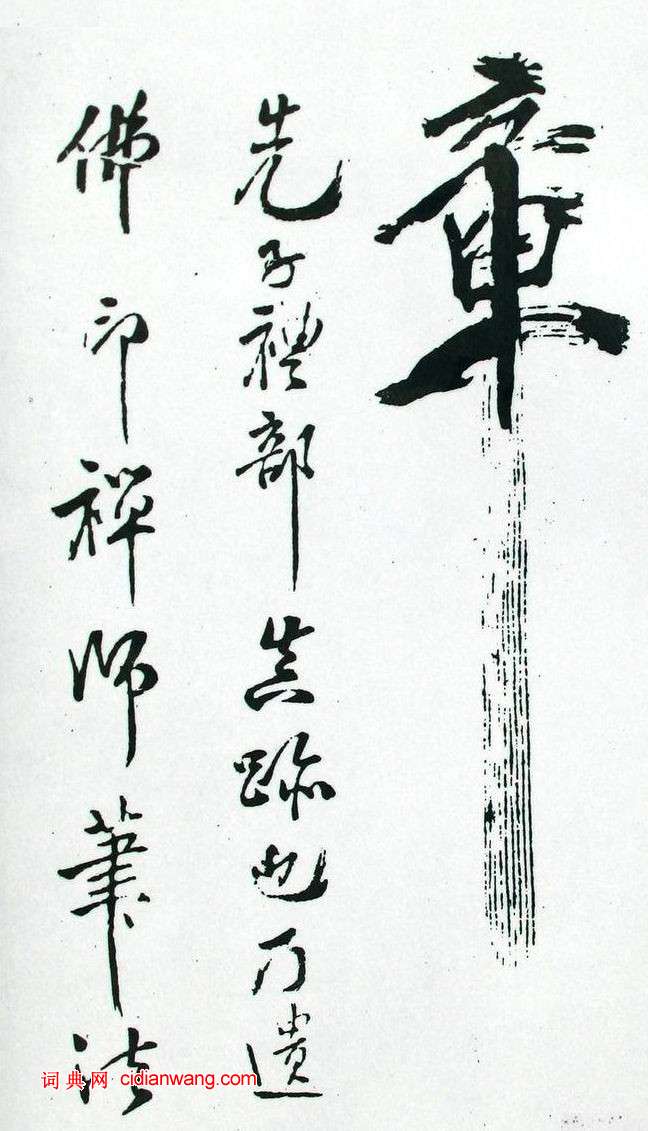 章
先子禮部真跡也乃遺
佛印禪師筆法
词典网 cidianwang.com